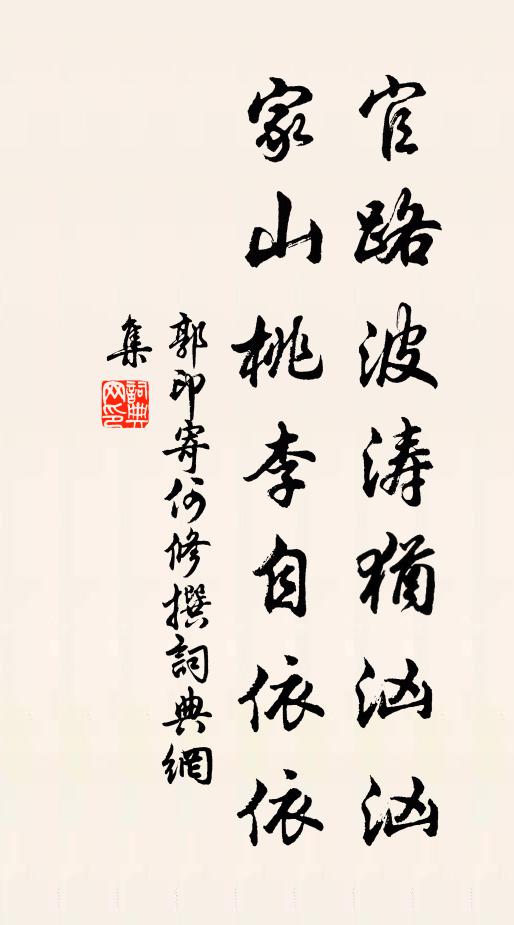 官路波濤猶汹汹
家山桃李自依依
郭印寄何修撰詞典網
集
詞典網印